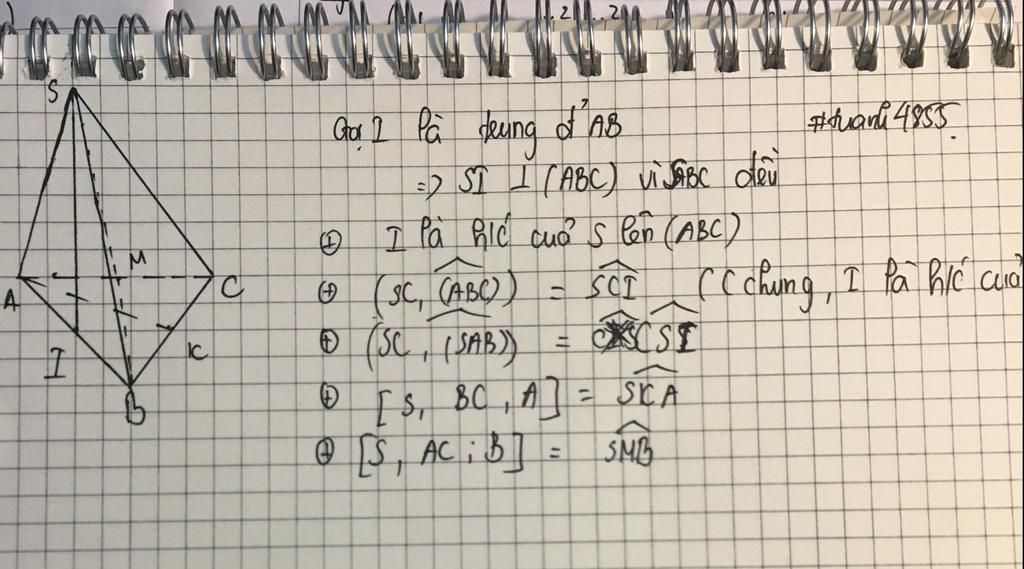 S
Gọi I là trung đ' AB
#tuanh4855.
=> SI ⊥ (ABC) vì SABC đều
⊕ I là h/c của S lên (ABC)
M
A
C
⊕ (SC, (ABC)) = SCI (C chung, I là h/c của
⊕ (SC, (SAB)) = CSI
I
K
B
⊕ [S, BC, A] = SKA
⊕ [S, AC ; B] = SMB